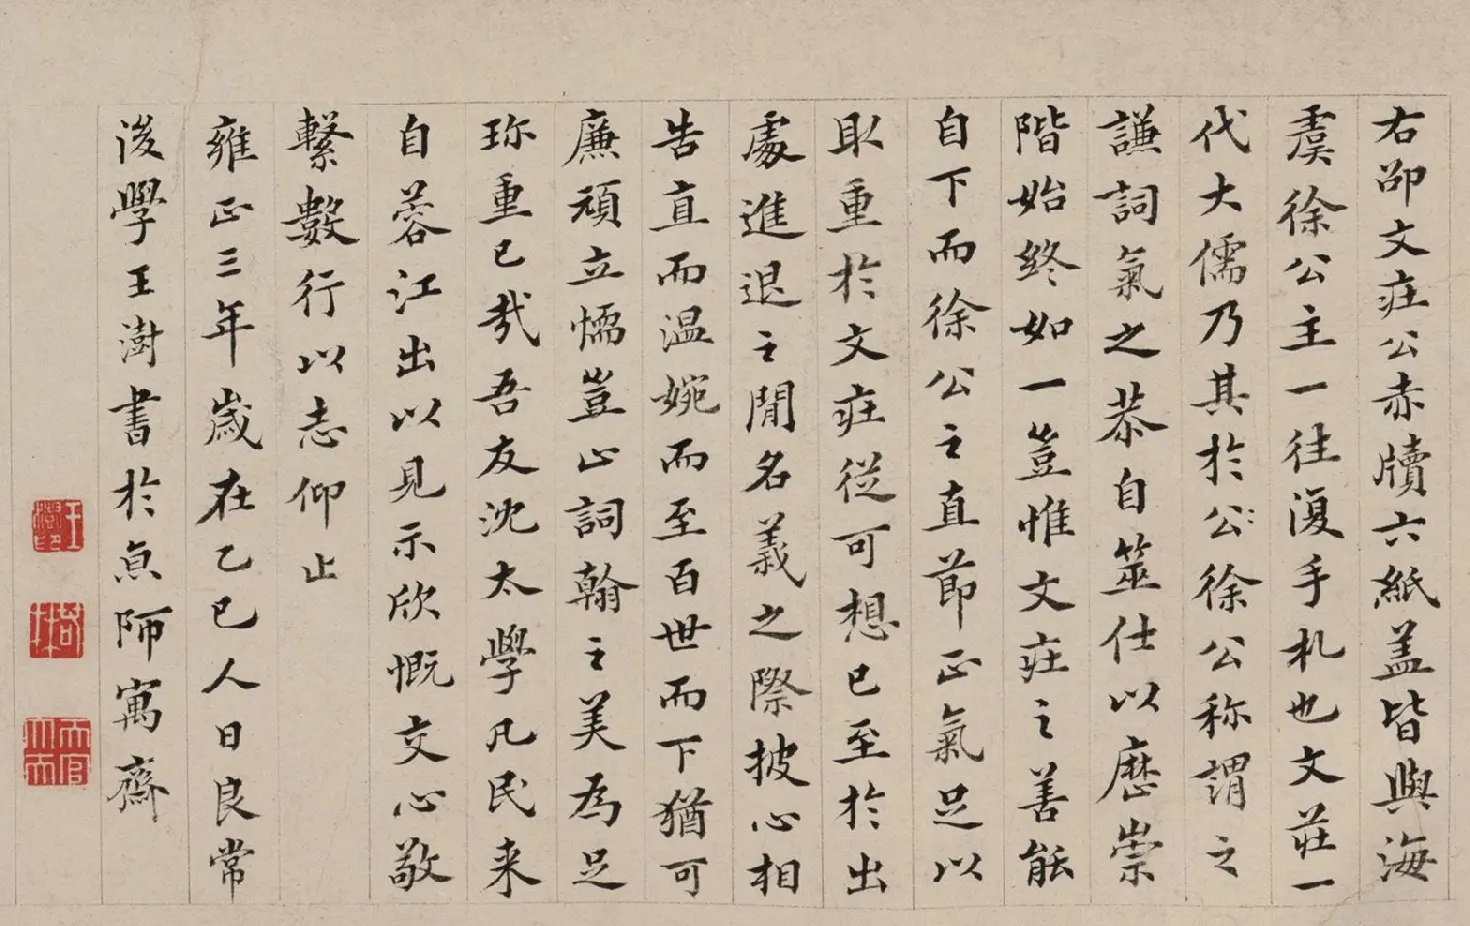 右邵文莊公赤牘六紙蓋皆與海
虞徐公主一往復手札也文莊一
代大儒乃其於公公徐公称謂之
謙詞氣之恭自筮仕以歷崇
階始終如一豈惟文莊之善能
自下而徐公之直節正氣足以
取重於文莊從可想已至於出
處進退之間名義之際披心相
告直而温婉而至百世而下猶可
廉頑立懦豈止詞翰之美為足
珎重已哉吾友沈太學凡民来
自蓉江出以見示欣慨交心敬
繫數行以志仰止
雍正三年歲在乙巳人日良常
後學王澍書於魚師寓齋